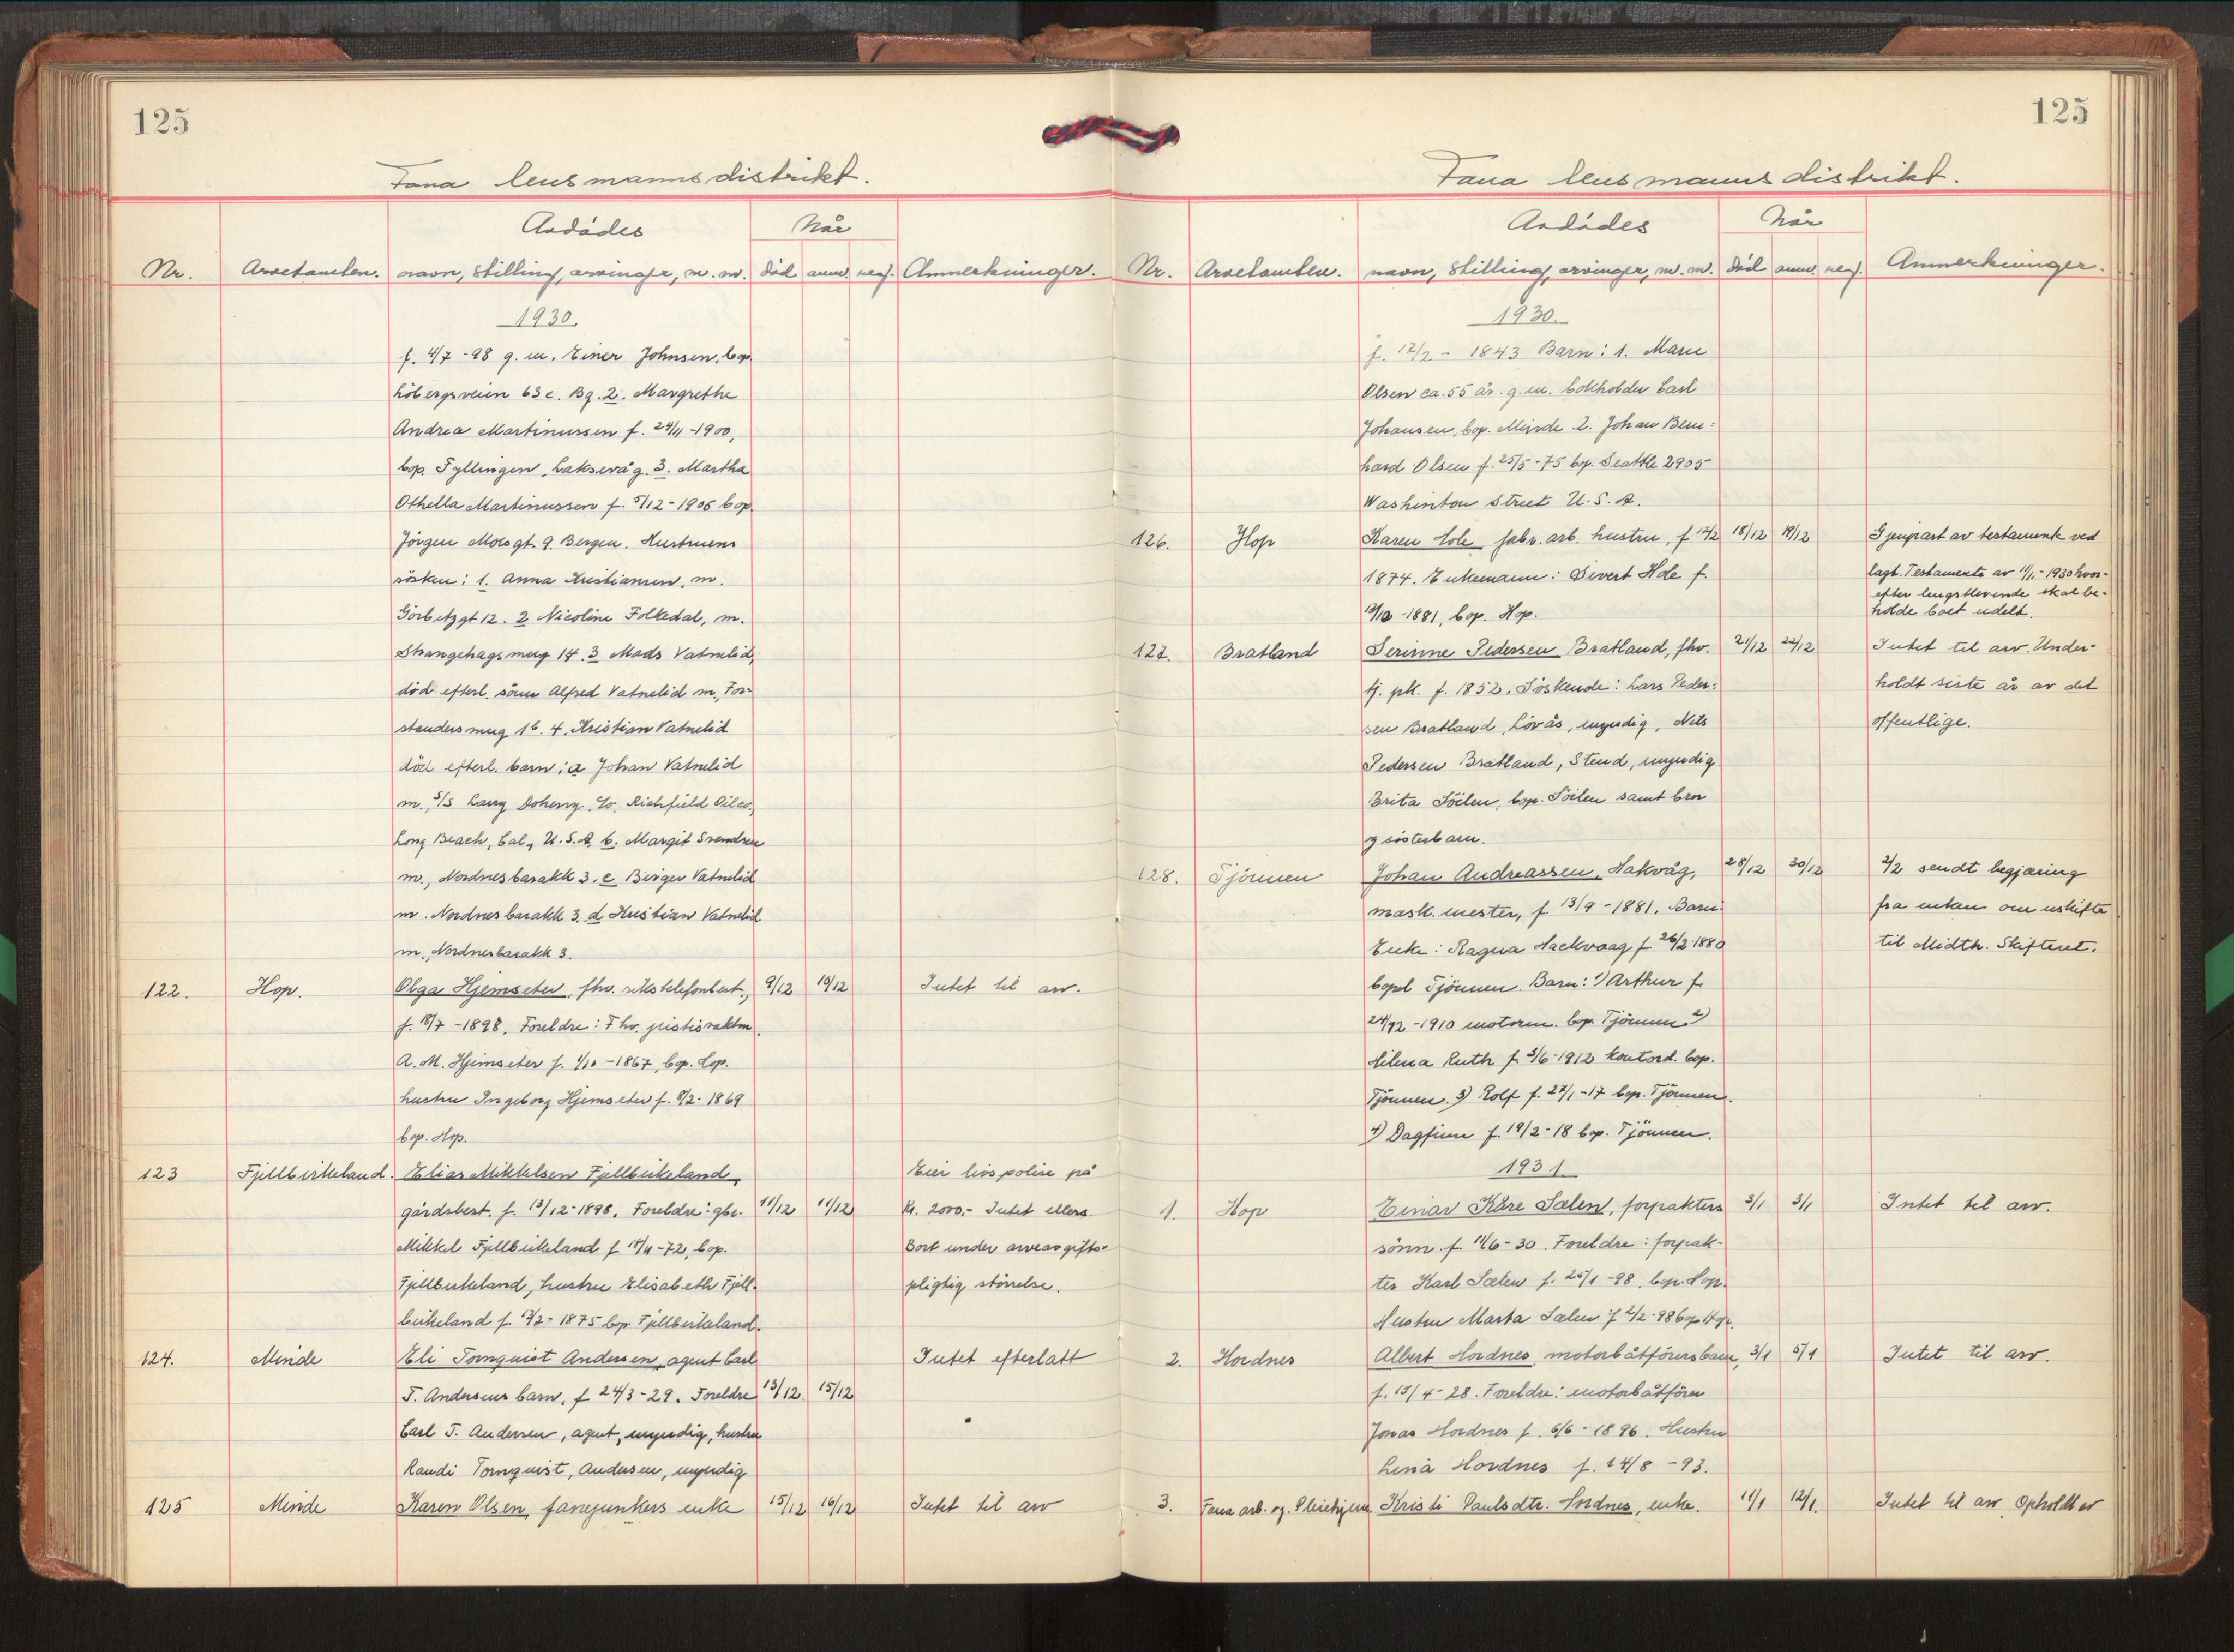 125
Fana lensmannsdistrikt.
Avdødes
Når
Nr. Arvetomten. navn, stilling, arvinger, m.m. död anm. reg. Anmerkninger.
1930.
f. 4/7 -98 g.m. Einer Johnsen, bop.
höbergsveien 63c. Bg. 2. Margrethe
Andrea Martinussen f. 24/11 -1900,
bop. Fyllingen, Laksevåg. 3. Martha
Othella Martinussen f. 5/12 - 1906 bop.
Jörgen Moesgt. 9. Bergen. Hustruens
sösken: 1. Anna Kristiansen, m.
Görbitzgt 12. 2 Nicoline Folkedal, m.
Strangehagsmug 14. 3 Mads Vatnelid,
död efterl. sönn Alfred Vatnelid m, For-
standersmug 16. 4. Kristian Vatnelid
död efterl. barn: a Johan Vatnelid
m., S/S Larry Doheny, Co. Richfield Oil co.,
Long Beach, Cal., U.S.A. b. Margit Svendsen
m., Nordnesbarakk 3. c Birger Vatnelid
m. Nordnesbarakk 3. d Kristian Vatnelid
m., Nordnesbarakk 3.
122. Hop. Olga Hjemseter, fhv. rikstelefonbest., 9/12 10/12 Intet til arv.
f. 18/7 -1898. Foreldre: Fhv. pristisvaktm.
A. M. Hjemseter f. 1/10 -1867, bop. Hop.
hustru Ingeborg Hjemseter f. 8/2- 1869
bop. Hop.
123 Fjellbirkeland. Elias Mikkelsen Fjellbirkeland, Eier livspolise på
gårdsbest. f. 13/12-1898. Foreldre: gbr. 11/12 11/12 kr. 2000,- Intet ellers.
Mikkel Fjellbirkeland f 15/11 -72, bop. Bort under arveavgifts-
Fjellbirkeland, hustru Elisabeth Fjell- pligtig störrelse.
birkeland f. 13/2- 1875 bop Fjellbirkeland.
124. Minde Eli Tornquist Andersen, agent Carl Intet efterlatt
T. Andersens barn, f 24/3-29. Foreldre 13/12 15/12
Carl T. Andersen, agent, myndig, hustru
Randi Tornquist, Andersen, myndig
125 Minde Karen Olsen, fanejunkers enke 15/12 16/12 Intet til arv
125
Fana lensmannsdistrikt.
Avdødes
Når
Nr. Arvetomten. navn, stilling, arvinger, m.m. död anm. reg. Anmerkninger.
1930.
f. 12/2 - 1843 Barn: 1. Marie
Olsen ca. 55 år. g.m. bokholder Carl
Johansen, bop. Minde. 2. Johan Bern-
hard Olsen f. 25/5 -75 bop. Seattle 2905
Washinton Street U.S.A.
126. Hop Karen Hole fabr. arb. hustru, f 12/2 18/12 19/12 Gjenpart av testamente ved
1874. Enkemann: Sivert Hole f. lagt. Testamente av 11/1 - 1930 hvor-
efter lengstlevende skal be-
19/10 -1881, bop. Hop. holde boet udelt.
127. Bratland Serinne Pedersen Bratland, fhv. 21/12 22/12 Intet til arv. Under-
tj. pk. f. 1852. Söskende: Lars Peder- holdt siste år av det
sen Bratland, Lövås, myndig, Nils offentlige.
Pedersen Bratland, Stend, myndig
Brita Söilen, bop. Söilen samt bror
og søsterbarn.
128. Tjönnen Johan Andreassen Hakvåg, 28/12 30/12 2/2 sendt begjæring
mask. mester, f. 13/9 - 1881. Barn: fra enken om uskifte
Enke: Ragna Hackvaag f 26/2 1880 til Midth. Skifteret.
bopel Tjönnen. Barn: 1) Arthur f.
24/12 -1910 motorm. bop. Tjönnen 2)
Hilma Ruth f. 3/6 -1912 kontord. bop.
Tjönnen. 3) Rolf f. 27/1 -17 bop. Tjönnen.
4) Dagfinn f. 19/2 -18 bop. Tjönnen.
1931
1. Hop Einar Kåre Sælen, forpakters 3/1 3/1 Intet til arv.
sönn f. 11/6 - 30. Foreldre: forpak-
ter Karl Sælen f. 25/1 -98, bop. Hop.
Hustru Marta Sælen f 2/2 -98 bop Hop.
2. Hordnes Albert Hordnes motorbåtförersbarn, 3/1 5/1 Intet til arv.
f. 15/4 - 28. Foreldre: motorbåtförer
Jonas Hordnes f. 6/6 - 1896. Hustru
Lina Hordnes f. 14/8 -93.
3. Fana arb. og Pleiehjem Kristi Paulsdtr. Hordnes, enke. 11/1 12/1. Intet til arv Opholdt av